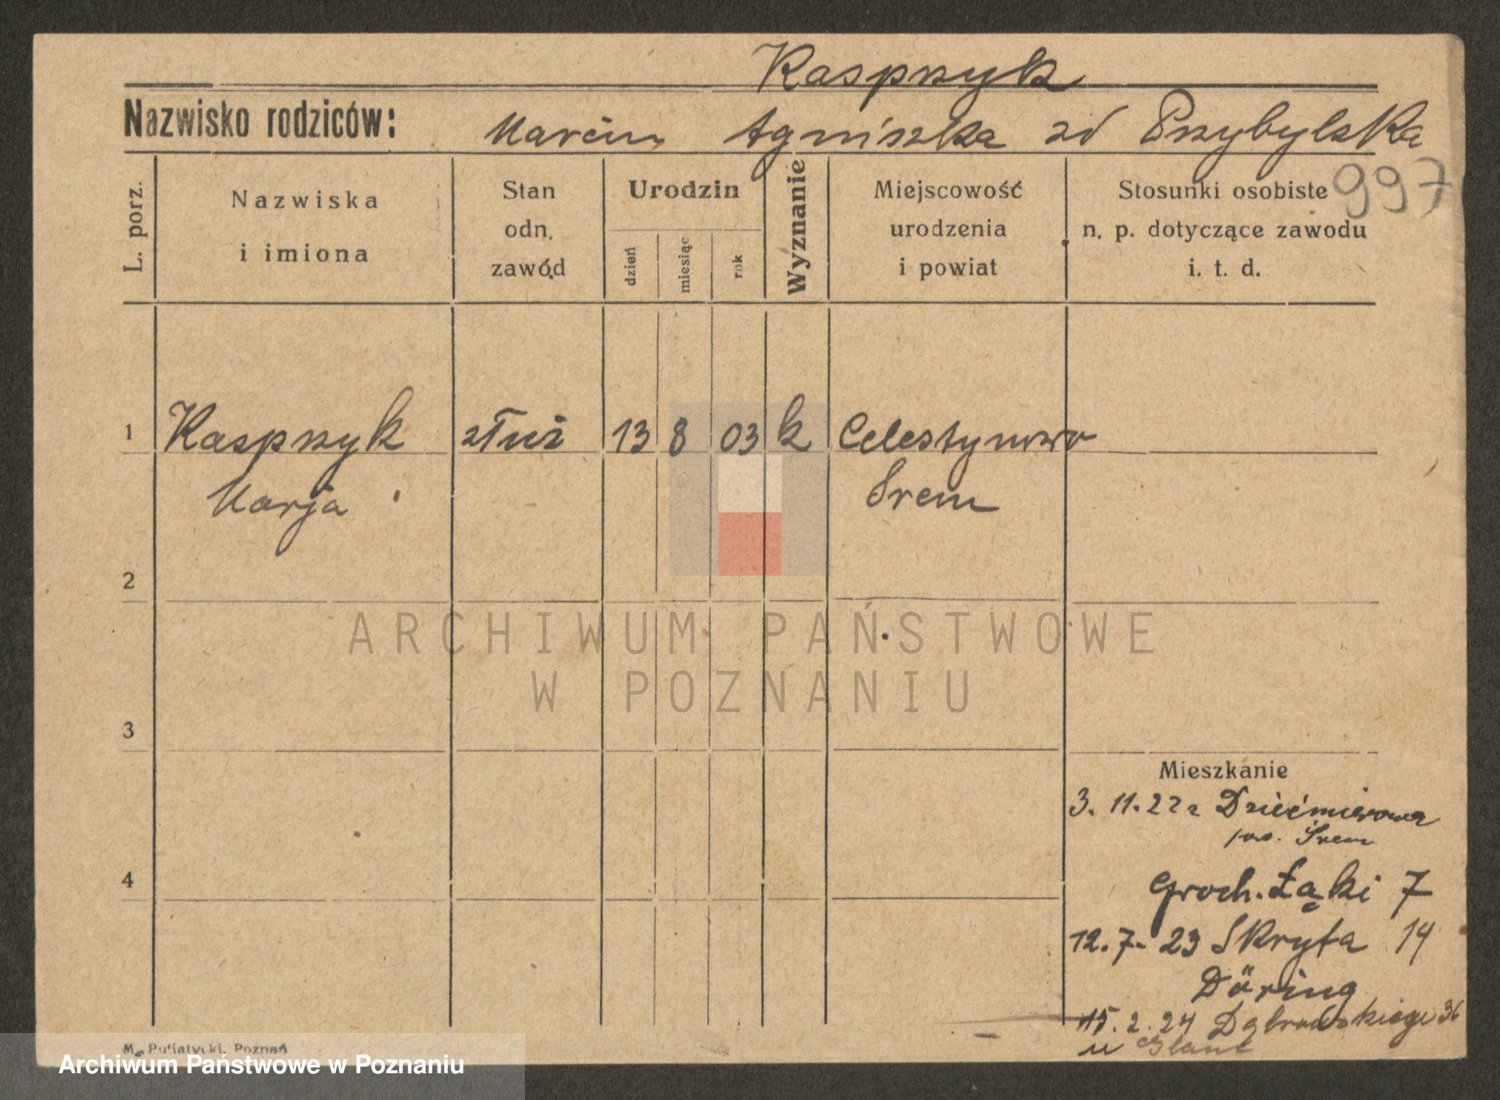 Kasprzyk
Nazwisko rodziców: Marcin Agniszka zd Przybylska
997
L. porz.
Nazwiska
i imiona
Stan
odn.
zawód
Urodzin
dzień
miesiąc
rok
Wyznanie
Miejscowość
urodzenia
i powiat
Stosunki osobiste
n. p. dotyczące zawodu
i. t. d.
1 Kasprzyk służ 13 8 03 k Celestynowo
Marja Śrem
2
ARCHIWUM PAŃSTWOWE
W POZNANIU
3
Mieszkanie
3. 11. 22 z Dziećmierowa
pow. Śrem
4
Groch. Łąki 7
12. 7. 23 Skryta 14
Döring
15. 2. 24 Dąbrowskiego 36
u
M. Putiatycki, Poznań
Archiwum Państwowe w Poznaniu